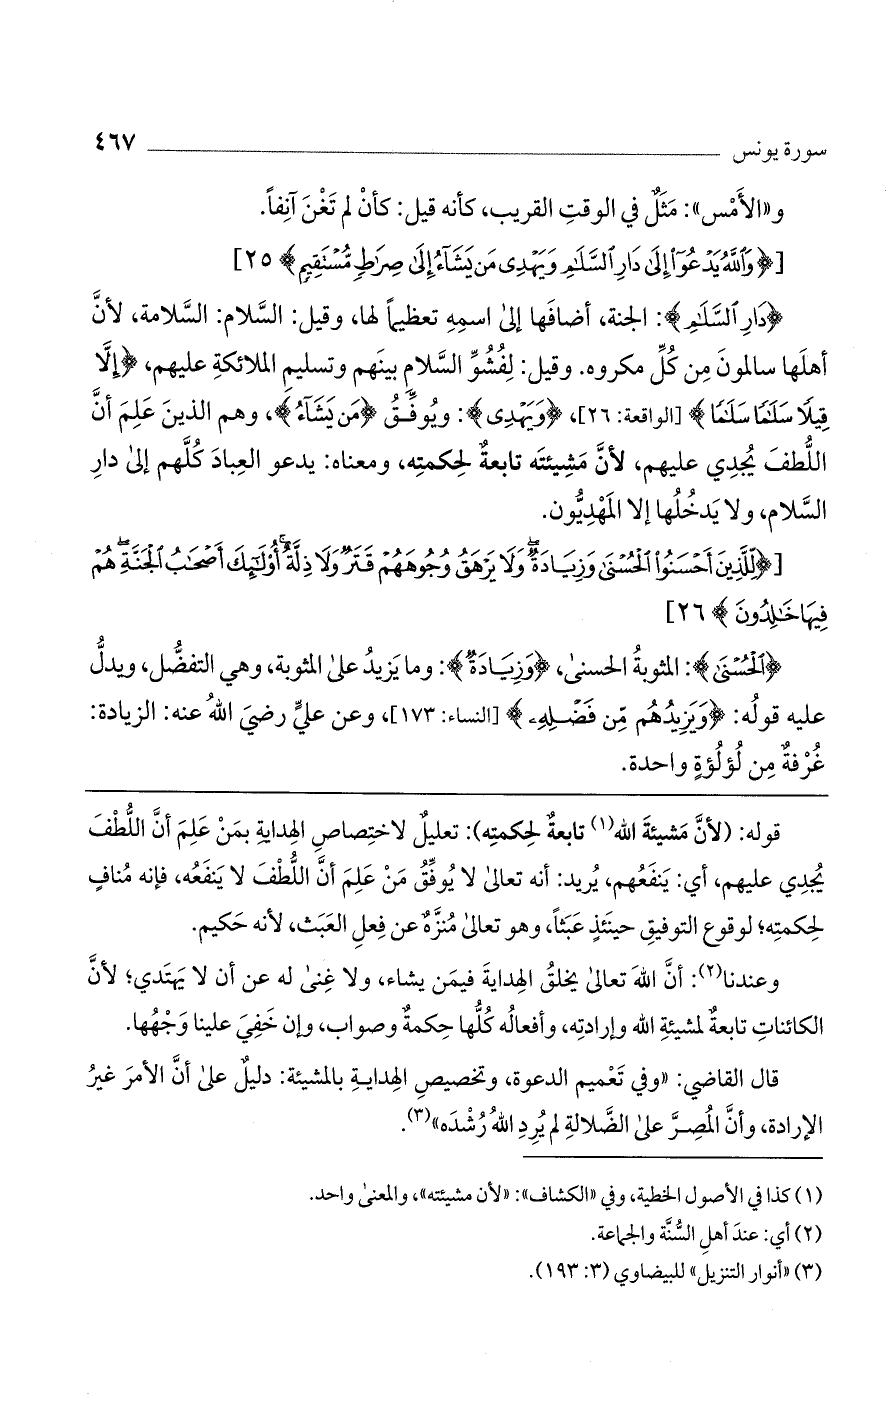 سورة يونس ٤٦٧
و«الأَمْس»: مَثَلٌ في الوقتِ القريب، كأنه قيل: كأنْ لم تَغْنَ آنِفاً.
[﴿وَٱللَّهُ يَدۡعُوٓاْ إِلَىٰ دَارِ ٱلسَّلَٰمِ وَيَهۡدِي مَن يَشَآءُ إِلَىٰ صِرَٰطٖ مُّسۡتَقِيمٖ﴾ ٢٥]
﴿دَارِ ٱلسَّلَٰمِ﴾: الجنة، أضافَها إلىٰ اسمِهِ تعظيماً لها، وقيل: السَّلام: السَّلامة، لأنَّ
أهلَها سالمونَ مِن كُلِّ مكروه. وقيل: لِفُشُوِّ السَّلامِ بينَهم وتسليمِ الملائكةِ عليهم، ﴿إِلَّا
قِيلٗا سَلَٰمٗا سَلَٰمٗا﴾ [الواقعة: ٢٦]، ﴿وَيَهۡدِي﴾: ويُوفِّقُ ﴿مَن يَشَآءُ﴾، وهم الذينَ عَلِمَ أنَّ
اللُّطفَ يُجدِي عليهم، لأنَّ مَشِيئتَه تابعةٌ لِحكمتِه، ومعناه: يدعو العِبادَ كلَّهم إلىٰ دارِ
السَّلام، ولا يَدخُلُها إلا المَهْدِيُّون.
[﴿لِّلَّذِينَ أَحۡسَنُواْ ٱلۡحُسۡنَىٰ وَزِيَادَةٞۖ وَلَا يَرۡهَقُ وُجُوهَهُمۡ قَتَرٞ وَلَا ذِلَّةٌۚ أُوْلَٰٓئِكَ أَصۡحَٰبُ ٱلۡجَنَّةِۖ هُمۡ
فِيهَا خَٰلِدُونَ﴾ ٢٦]
﴿ٱلۡحُسۡنَىٰ﴾: المثوبةُ الحسنىٰ، ﴿وَزِيَادَةٞ﴾: وما يَزيدُ علىٰ المثوبة، وهي التفضُّل، ويدلُّ
عليه قولُه: ﴿وَيَزِيدُهُم مِّن فَضۡلِهِۦ﴾ [النساء: ١٧٣]، وعن عليٍّ رضيَ اللهُ عنه: الزيادة:
غُرْفةٌ مِن لُؤلُؤةٍ واحدة.
قوله: (لأنَّ مَشيئةَ الله(١) تابعةٌ لحِكمتِه): تعليلٌ لاختِصاصِ الهدايةِ بمَنْ عَلِمَ أنَّ اللُّطْفَ
يُجدِي عليهم، أي: يَنفَعُهم، يُريد: أنه تعالىٰ لا يُوفِّقُ مَنْ عَلِمَ أنَّ اللُّطْفَ لا يَنفَعُه، فإنه مُنافٍ
لحِكمتِه؛ لوقوع التوفيقِ حينَئذٍ عَبَثاً، وهو تعالىٰ مُنزَّهٌ عن فِعلِ العَبَث، لأنه حَكيم.
وعندنا(٢): أنَّ اللهَ تعالىٰ يخلقُ الهدايةَ فيمَن يشاء، ولا غِنىٰ له عن أن لا يَهتَدي؛ لأنَّ
الكائناتِ تابعةٌ لمشيئةِ الله وإرادتِه، وأفعالُه كُلُّها حِكمةٌ وصواب، وإن خَفِيَ علينا وَجْهُها.
قال القاضي: «وفي تَعْميم الدعوة، وتخصيصِ الهِدايةِ بالمشيئة: دليلٌ علىٰ أنَّ الأمرَ غيرُ
الإرادة، وأنَّ المُصِرَّ علىٰ الضَّلالةِ لم يُرِدِ اللهُ رُشْدَه»(٣).
(١) كذا في الأصول الخطية، وفي «الكشاف»: «لأن مشيئته»، والمعنىٰ واحد.
(٢) أي: عندَ أهلِ السُّنَّة والجماعة.
(٣) «أنوار التنزيل» للبيضاوي (٣: ١٩٣).